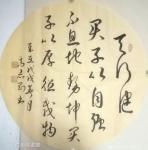 天行健
君子以自强
不息地势坤君
子以厚德载物
戊戌年
书